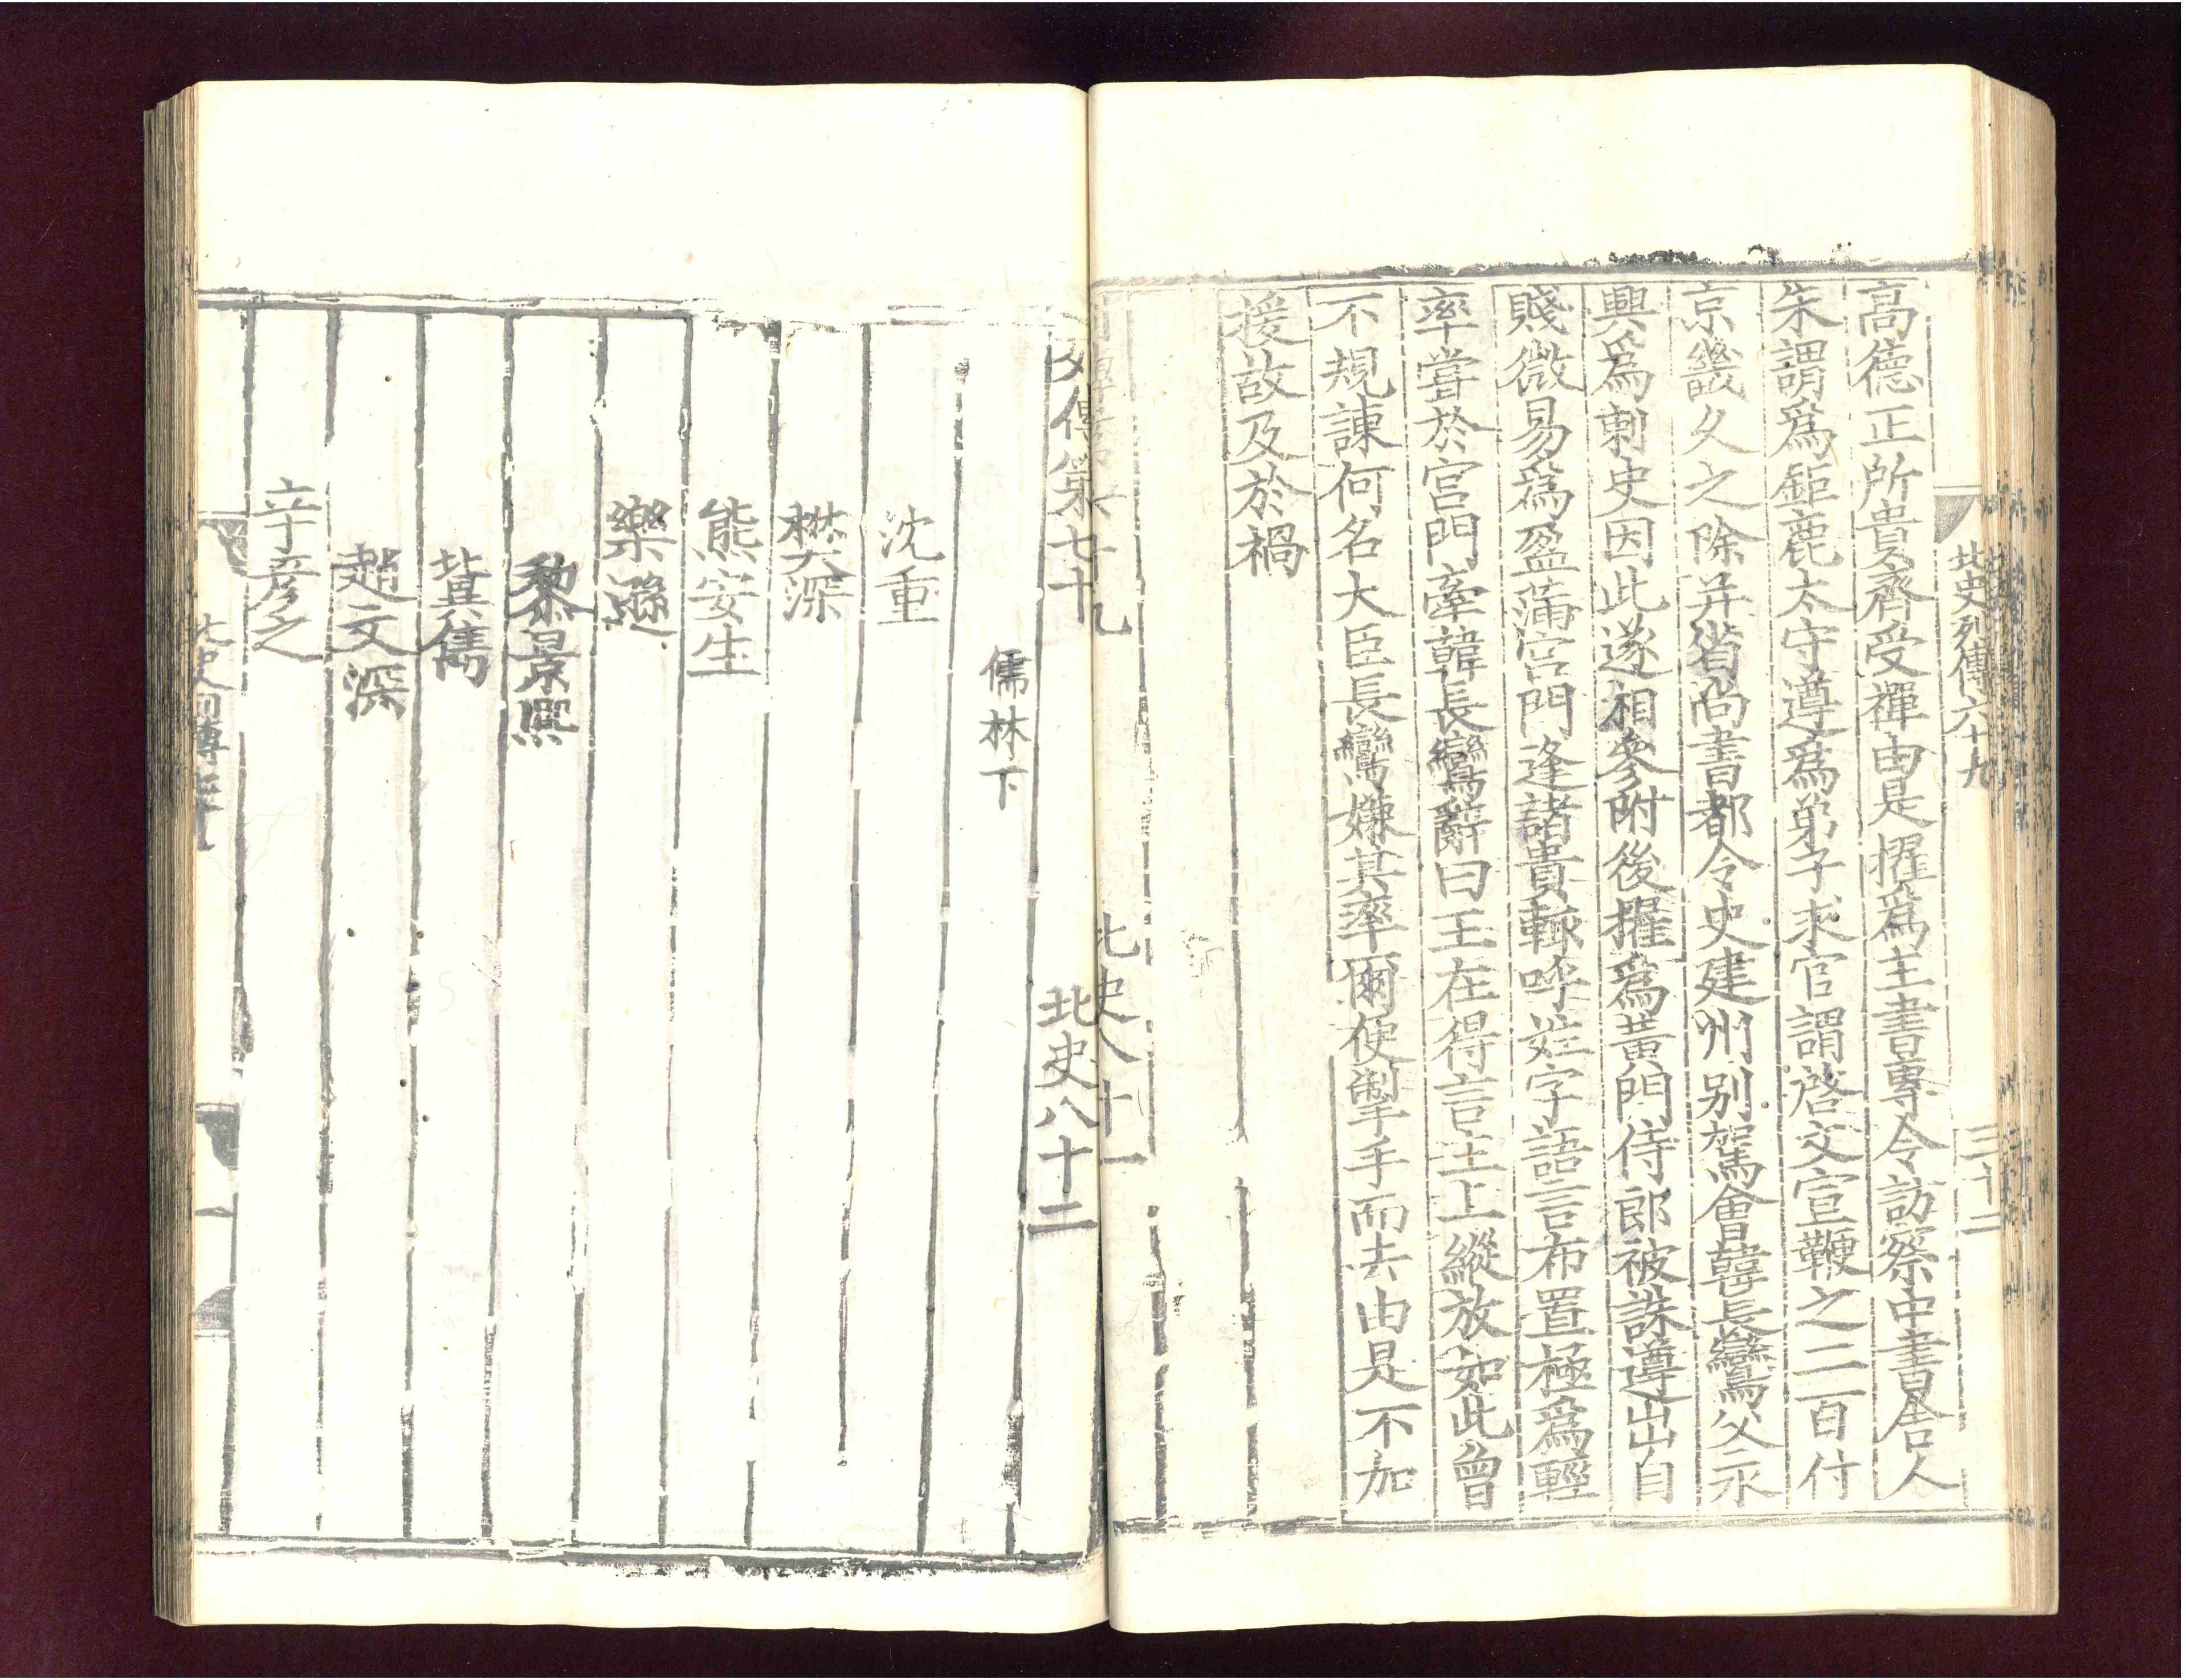 北史列傳六十九
三十二
高德正所貴齊受禪由是擢爲主書專令訪察中書舍人
朱謂爲鉅鹿太守遵爲弟子求官謂啓文宣鞭之二百付
京畿久之除并省尚書都令史建州别駕會韓長鸞父永
興爲刺史因此遂相參附後擢爲黃門侍郎被誅遵出自
賤微易爲盈滿宮門逢諸貴輙呼姓字語言布置極爲輕
率嘗於宮門牽韓長鸞辭曰王在得言主上縱放如此曾
不規諫何名大臣長鸞嫌其率爾便掣手而去由是不加
援故及於禍
北史八十一
列傳第七十
北史八十二
儒林下
沈重
樊深
熊安生
樂遜
黎景熙
冀儁
趙文深
辛彥之